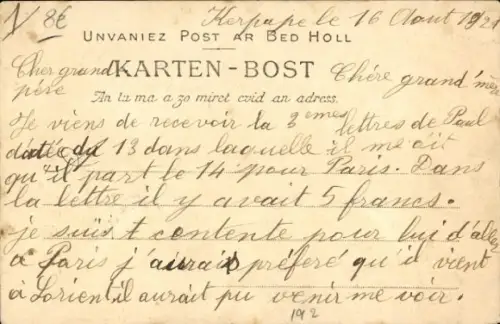 8€
Kerpape le 16 Aout 1921
UNVANIEZ POST AR BED HOLL
KARTEN-BOST
Cher grand père
Chère grand'mère
An tu ma a zo miret evid an adress.
Je viens de recevoir la 3emes lettres de Paul
datée du 13 dans laquelle il me dit
qu'il part le 14 pour Paris. Dans
la lettre il y avait 5 francs.
je suis t contente pour lui d'aller
a Paris j'aurais préferé qu'il vient
à Lorient il aurait pu venir me voir.
192